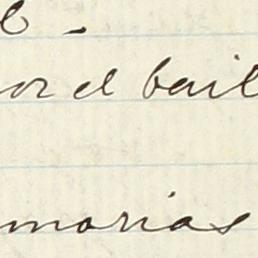 or el bail
morias